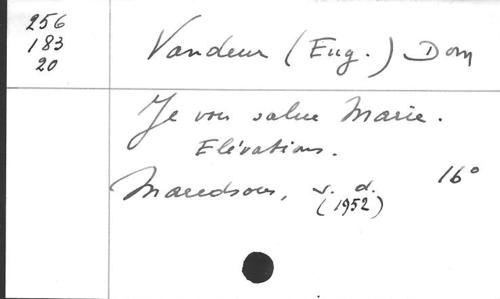 256
183
20
Vandeur (Eug.) Dom
Je vous salue Marie.
Elévations.
Maredsous, s. d. 16°
(1952)